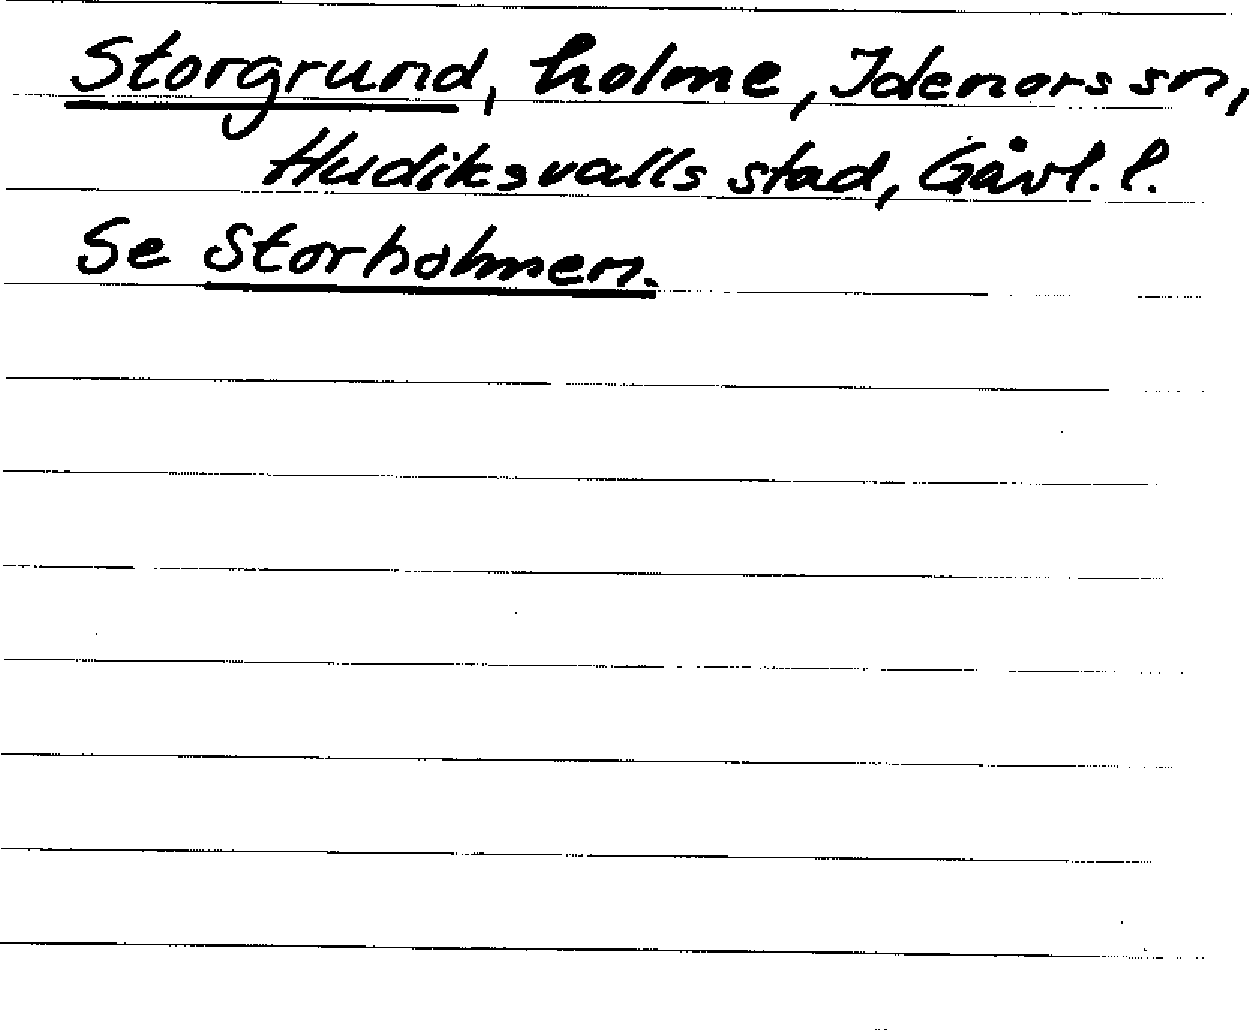 Storgrund, holme, Idenors sn,
Hudiksvalls stad, Gävl. l.
Se Storholmen.